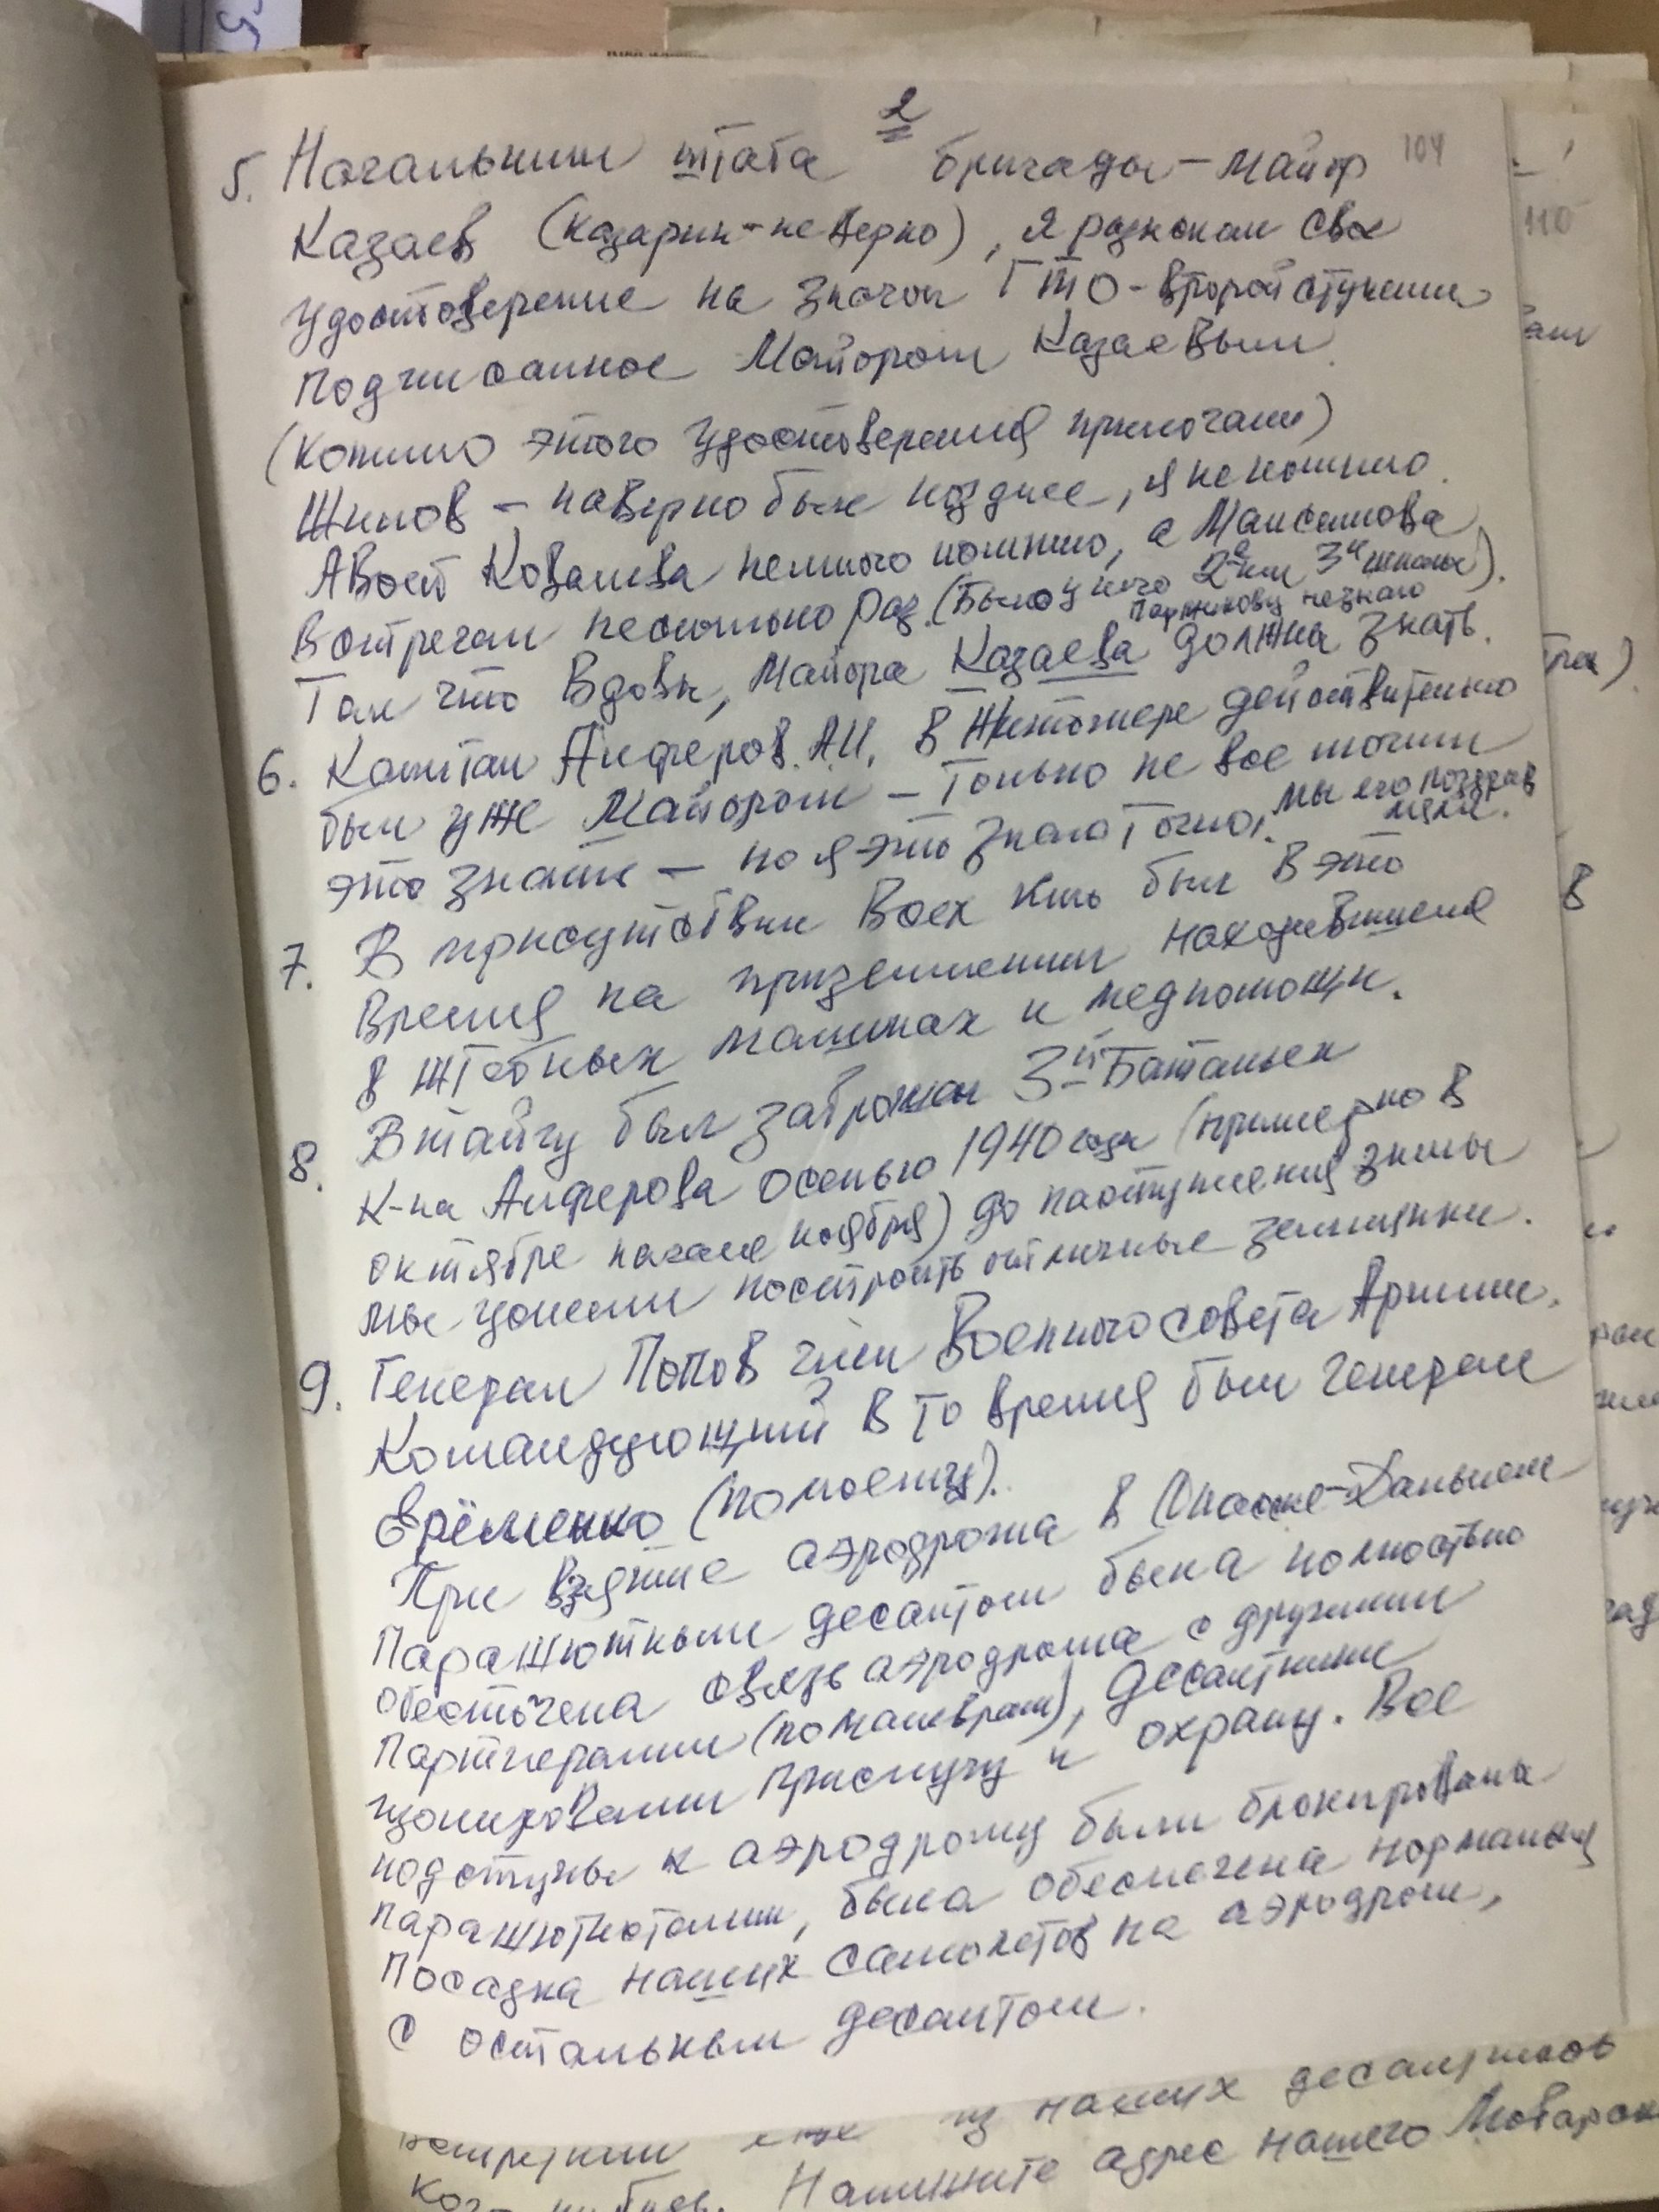 2
104
5. Начальник штаба бригады – майор
Казаев (Казарин – неверно), я разыскал свое
Удостоверение на значок ГТО – второй ступени
Подписанное Майором Казаевым.
(Копию этого удостоверения прилагаю)
Шилов – наверно был позднее, я не помню.
А вот Ковалева немного помню, а Максимова
встречал несколько раз. (Было у него 2е кл 3й школы).
Парникову не знаю
Так что вдовы, Майора Казаева должна знать.
6. Капитан Алферов А.И. в Житомере действительно
был уже Майором – только не все могли
это знать – но я это знаю точно, мы его поздрав
ляли.
7. В присутствии всех кто был в это
время на приземлении находившиеся
в штабных машинах и медпомощи.
8. В тайгу был заброшен 3й Батальен
К-на Алферова осенью 1940 года (примерно в
октябре начале ноября) до наступления зимы
мы успели построить отличные землянки.
9. Генерал Попов член Военного совета Армии.
Командующий в то время был генерал
Ерёменко (по моему).
При взятие аэродрома в Спасске-Дальнем
Парашютным десантом была полностью
обесточена связь аэродрома с другими
Партнерами (по маневрам), десантники
изолировали прислугу и охрану. Все
подступы к аэродрому были блокированы
парашютистами, была обеспечена нормальная
Посадка наших самолетов на аэродром,
с остальным десантом.
из наших десантников
Напишите адрес нашего
110
в